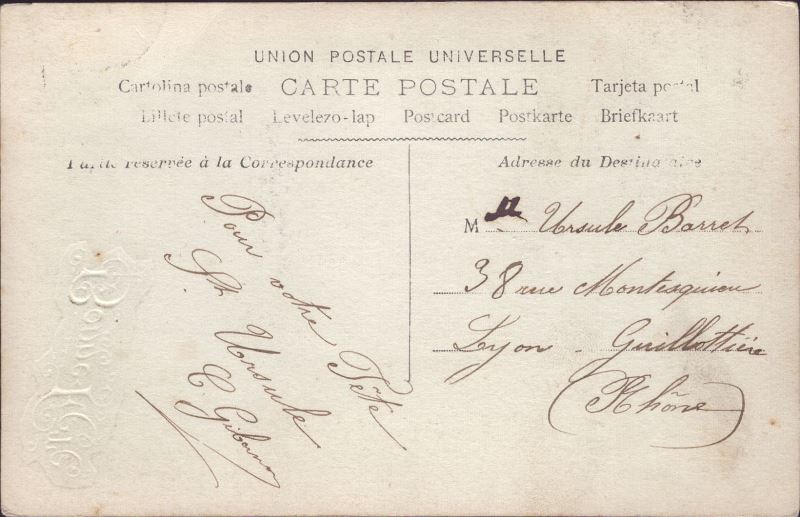 UNION POSTALE UNIVERSELLE
Cartolina postale CARTE POSTALE Tarjeta postal
Lillete postal Levelezo-lap Postcard Postkarte Briefkaart
Partie réservée à la Correspondance
Adresse du Destinataire
Bonne Fête
Pour votre Fête
St Ursule
C.
Mlle Ursule Barret
38 rue Montesquieu
Lyon - Guillottière
(Rhône)